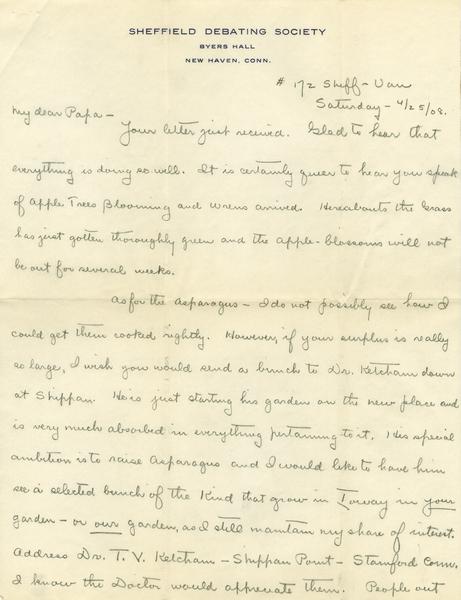 SHEFFIELD DEBATING SOCIETY
BYERS HALL
NEW HAVEN, CONN.
# 172 Sheff-Van
Saturday - 4/25/08.
My dear Papa -
Your letter just received. Glad to hear that
everything is doing so well. It is certainly queer to hear you speak
of Apple Trees Blooming and wrens arrived. Hereabouts the Grass
has just gotten thoroughly green and the apple-blossoms will not
be out for several weeks.
As for the Asparagus - I do not possibly see how I
could get them cooked rightly. However, if your surplus is really
so large, I wish you would send a bunch to Dr. Ketcham down
at Shippan. He is just starting his garden on the new place and
is very much absorbed in everything pertaining to it. His special
ambition is to raise Asparagus and I would like to have him
see a selected bunch of the Kind that grow in Torway in your
garden - or our garden, as I still maintain my share of interest.
Address Dr. T. V. Ketcham - Shippan Point - Stamford Conn.
I know the Doctor would appreciate them. People out